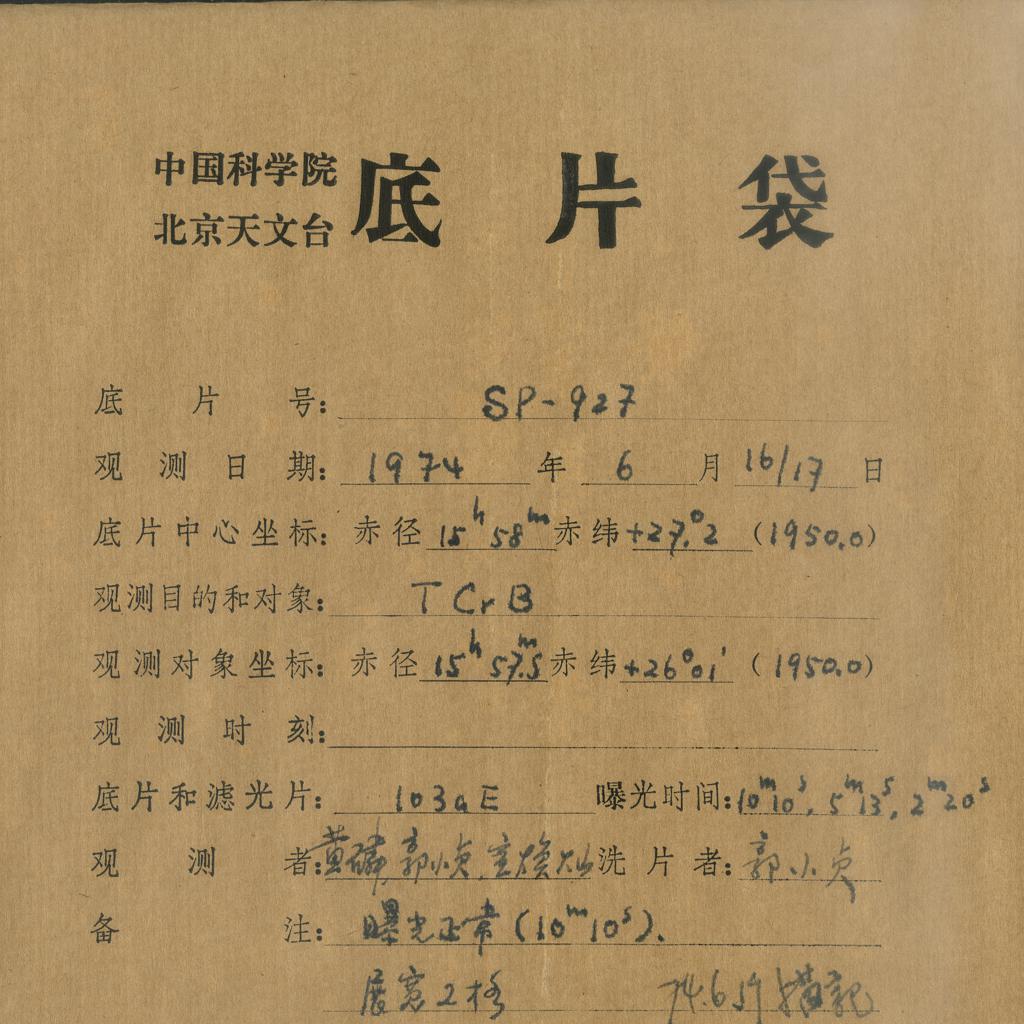 中国科学院
北京天文台
底片袋
底片号: SP-927
观测日期: 1974年6月16/17日
底片中心坐标: 赤径 15h 58m 赤纬 +27.°2 (1950.0)
观测目的和对象: T CrB
观测对象坐标: 赤径 15h 57m.5 赤纬 +26°01' (1950.0)
观测时刻:
底片和滤光片: 103aE 曝光时间: 10m10s, 5m13s, 2m20s
观测者: 黄磷, 郭小贞, 洗片者: 郭小贞
备注: 曝光正常 (10m10s).
展宽2格 74.6